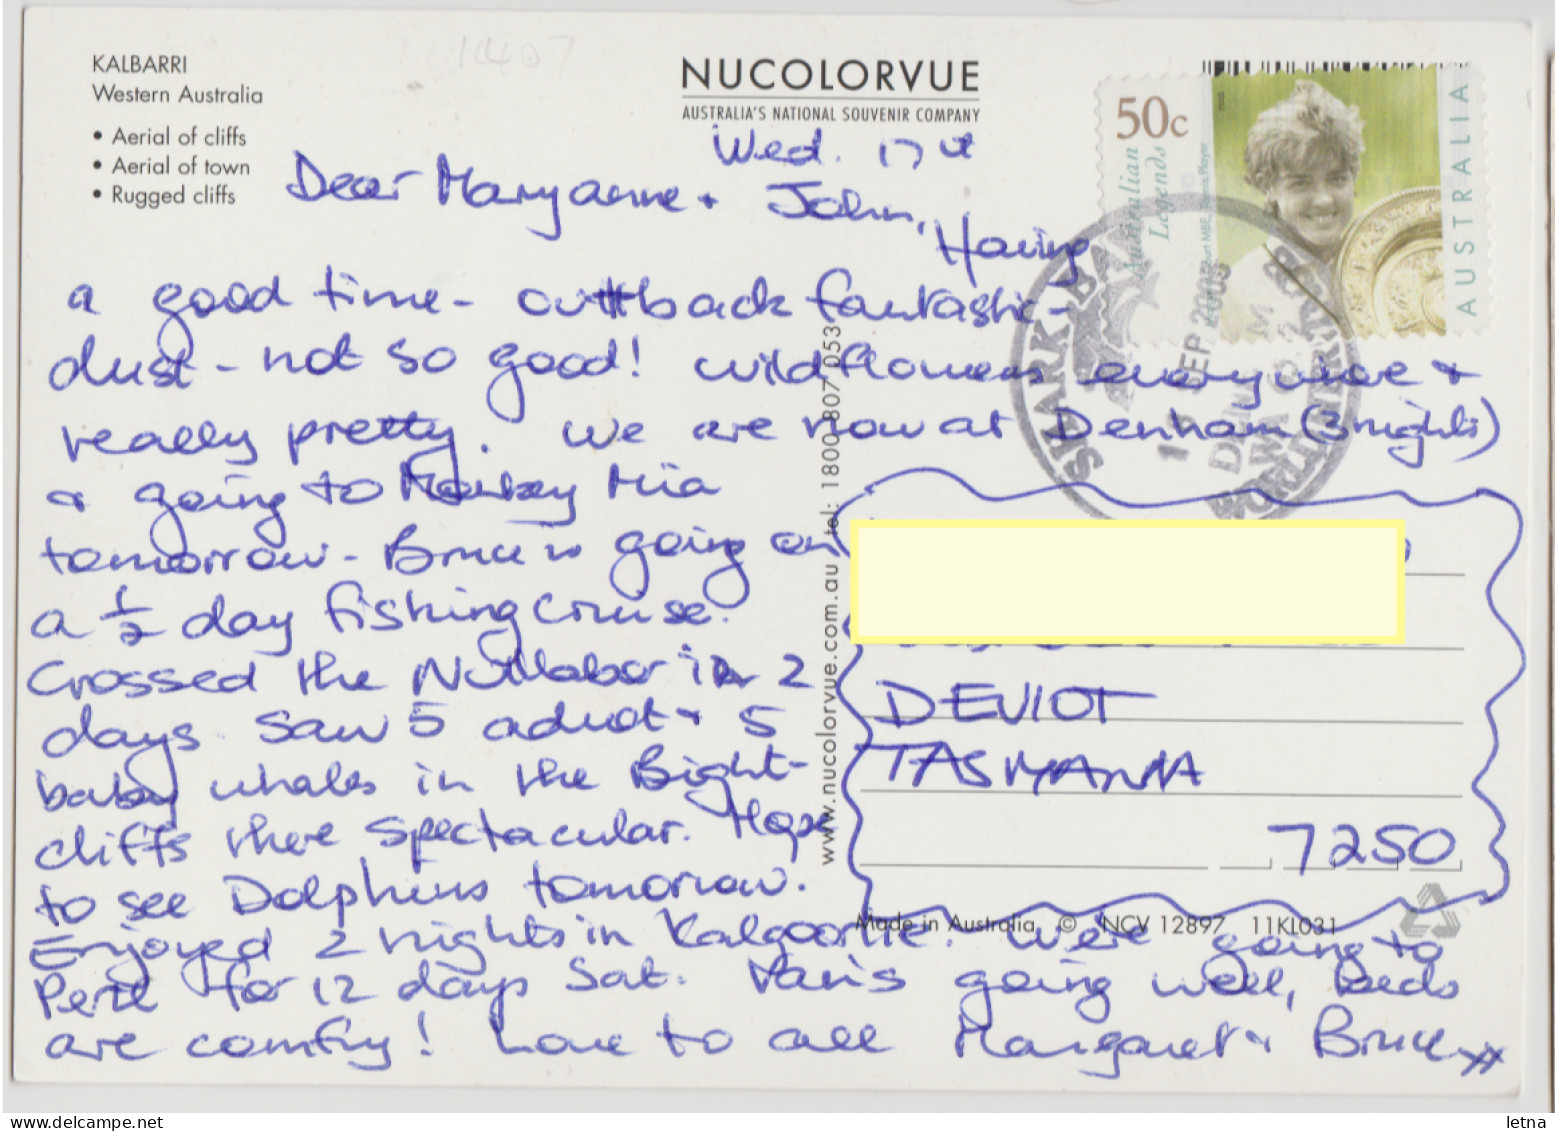 KALBARRI
Western Australia
• Aerial of cliffs
• Aerial of town
• Rugged cliffs
NUCOLORVUE
AUSTRALIA'S NATIONAL SOUVENIR COMPANY
50c
Australian
Legends
AUSTRALIA
SHARK BAY
SEP 2003
WORLD HERITAGE
Wed. 17th
Dear Maryanne + John,
Having
a good time - outback fantastic -
dust - not so good! wildflowers everywhere +
really pretty. We are now at Denham (3 nights)
+ going to Monkey Mia
tomorrow - Bruce is going on
a ½ day fishing cruise.
Crossed the Nullabor in 2
days. Saw 5 adult + 5
baby whales in the Bight -
cliffs there spectacular. Hope
to see Dolphins tomorrow.
Enjoyed 2 nights in Kalgoorlie. We're going to
Perth for 12 days Sat. Vans going well, beds
are comfy! Love to all Margaret + Bruce xx
DEVIOT
TASMANIA
7250
www.nucolorvue.com.au tel: 1800 807 053
Made in Australia © NCV 12897 11KL031
letna